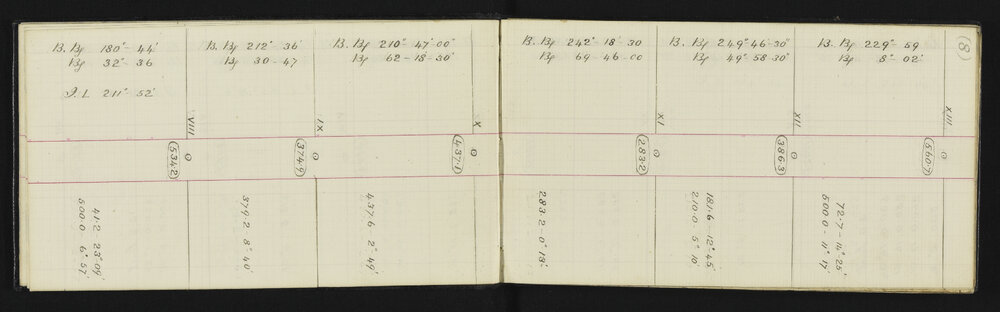 B. Bg 180°- 44'
Bg 32°- 36
I. L 211° 52'
VIII
(534.2)
41.2 23° 09'
500.0 6° 57'
B. Bg 212° 36'
Bg 30 - 47
IX
(374.9)
379.2 8° 40'
B. Bg 210° 47' 00"
Bg 62 - 18 - 30"
X
(437.1)
437.6 2° 49'
B. Bg 242° 18' 30
Bg 69 - 46 - 00
XI
(283.2)
283.2 - 0° 13'
B. Bg 249° 46' 30"
Bg 49° 58 - 30'
XII
(386.3)
181.6 - 12° 45'
210.0 - 5° 10'
(8)
B. Bg 229° - 59
Bg 8° 02'
XIII
(560.7)
72.7 - 14° 25'
500.0 - 11° 17'